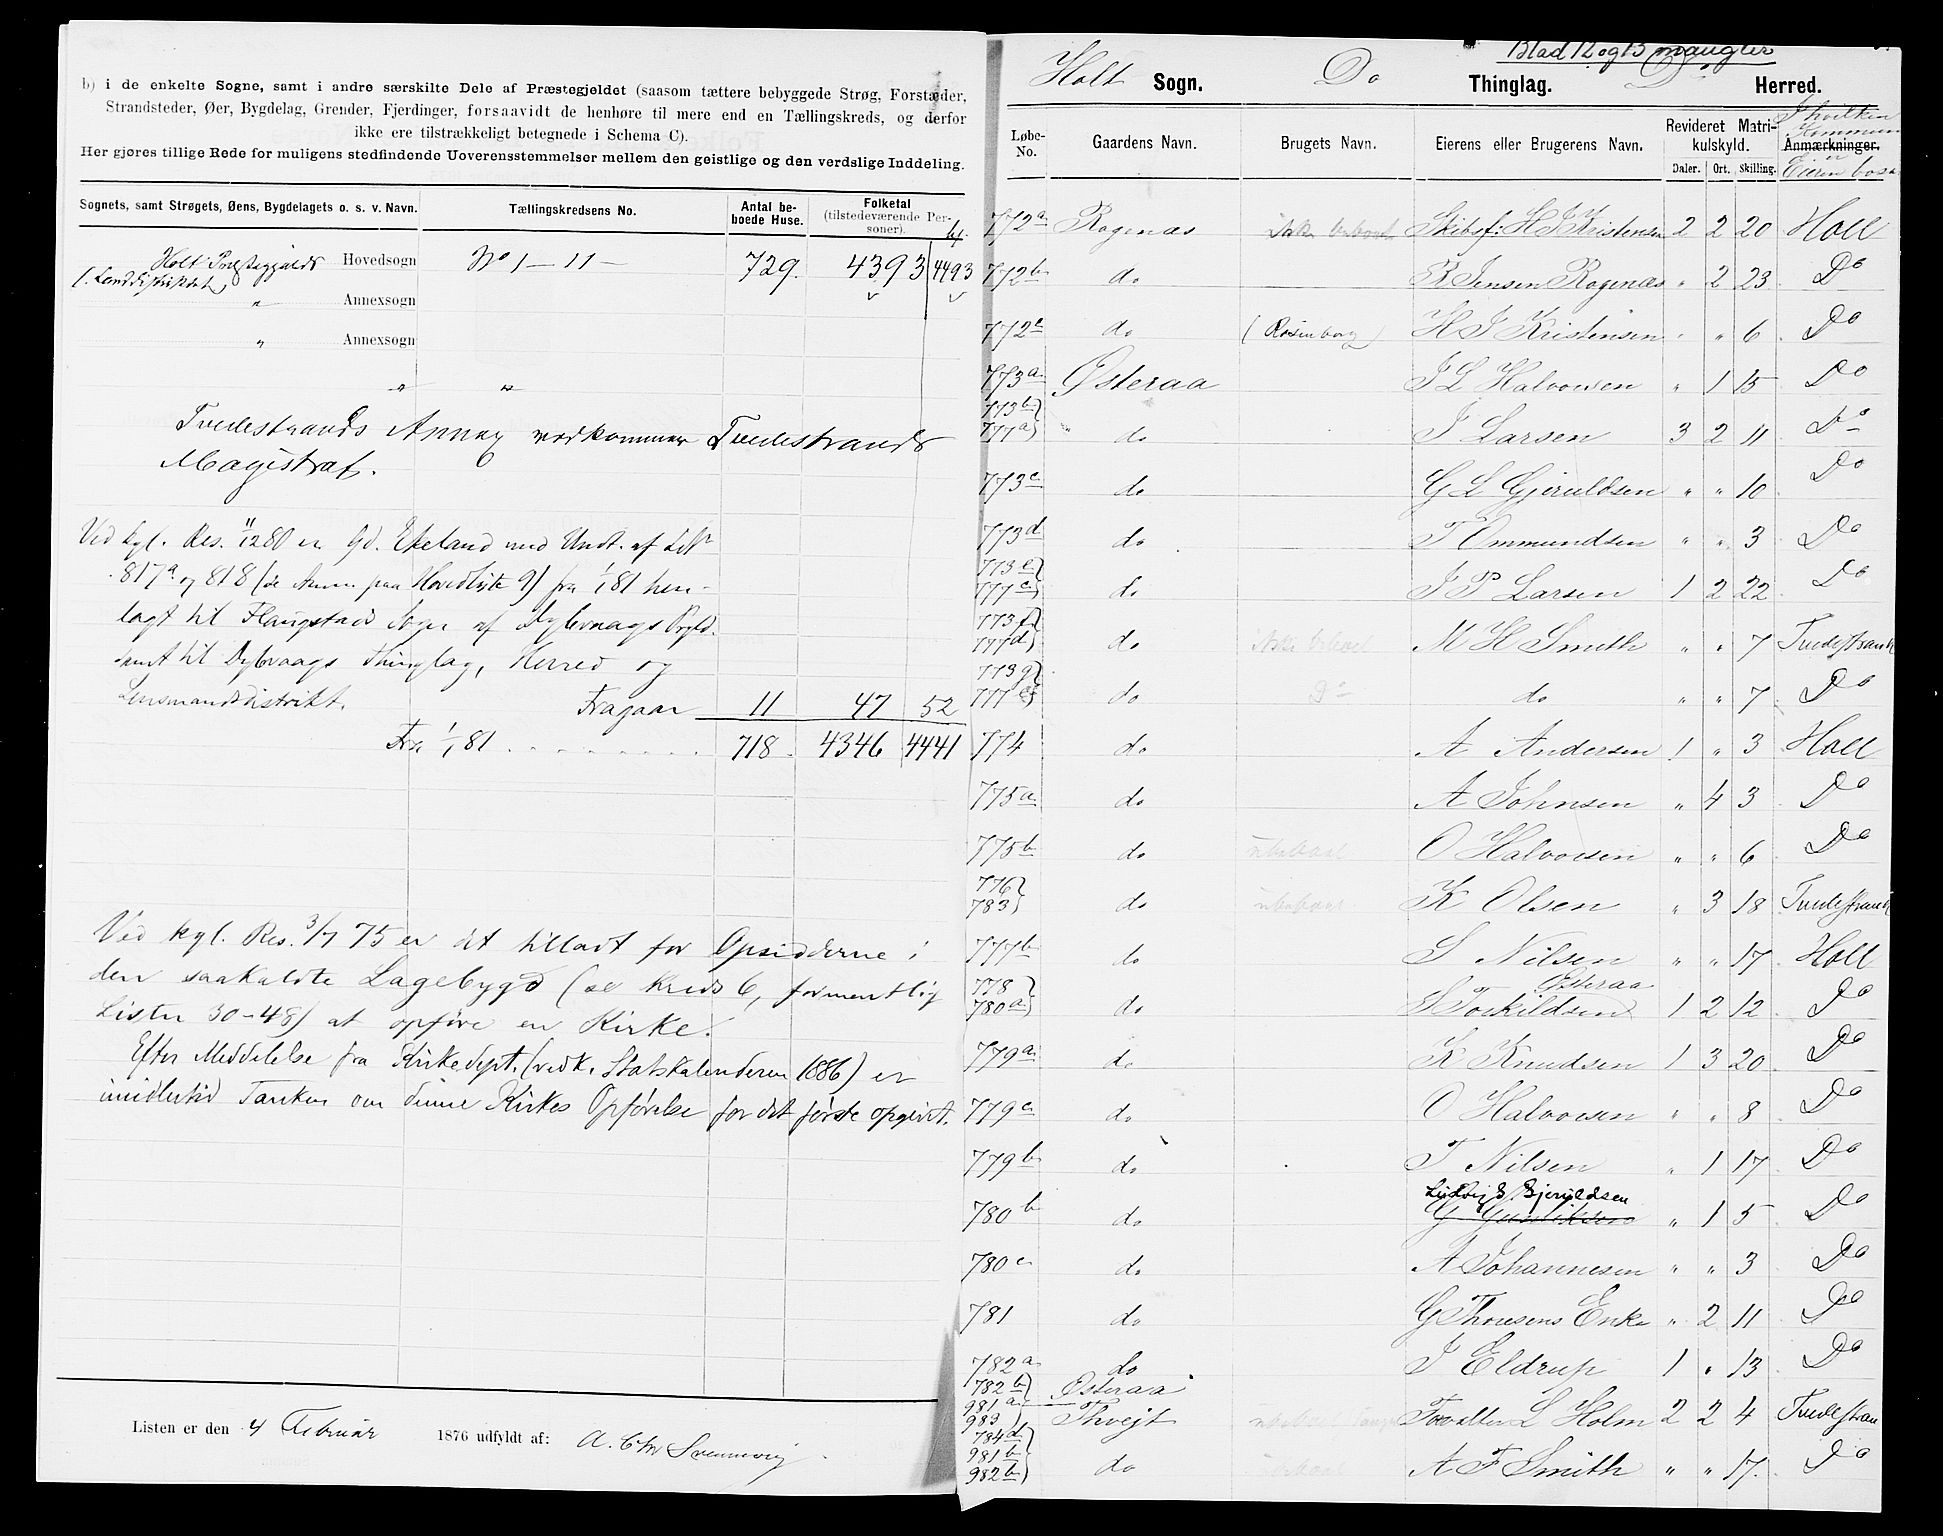 b) i de enkelte Sogne, samt i andre særskilte Dele af Præstegjeldet (saasom tættere bebyggede Strøg, Forstæder,
Strandsteder, Øer, Bygdelag, Grender, Fjerdinger, forsaavidt de henhøre til mere end en Tællingskreds, og derfor
ikke ere tilstrækkeligt betegnede i Schema C).
Her gjøres tillige Rede for muligens stedfindende Uoverensstemmelser mellem den geistlige og den verdslige Inddeling.
Sognets, samt Strøgets, Øens, Bygdelagets o. s. v. Navn. Tællingskredsens No. Antal beboede Huse. Folketal (tilstedeværende Personer).
Holt Præstegjelds Hovedsogn No 1 – 11 – 729. 4393 4493
(Landdistriktet)
" Annexsogn
" Annexsogn
" "
Tvedestrands Annex vedkommer Tvedestrands
Magistrat.
Ved kgl. Res. 11/12 80 er Gd. Ekeland med Undt. af LNr
817a og 818 (se Anm. paa Hovedliste 9) fra 1/1 81 hen-
lagt til Flaugstad Sogn af Dybvaags Prgld.
samt til Dybvaags Thinglag, Herred og
Lensmandsdistrikt. Fragaar 11 47 52
Fra 1/1 81 . . . . . . . 718. 4346 4441
Ved kgl. Res. 3/7 75 er det tilladt for Opsidderne i
den saakaldte Lagebygd (se Kreds 6, formentlig
Lister 30-48) at opføre en Kirke.
Efter Meddelelse fra Kirkedept. (vedk. Statskalenderen 1886) er
imidlertid Tanken om denne Kirkes Opførelse for det første opgivet.
Listen er den 4 Februar 1876 udfyldt af: A. Chr
Blad 12 og 13 mangler
Holt Sogn. Do Thinglag. Do Herred.
Løbe-No. Gaardens Navn. Brugets Navn. Eierens eller Brugerens Navn. Revideret Matrikulskyld. Daler. Ort. Skilling. Anmærkninger. I hvilken Kommune er Eieren bosat
772a Ragenæs ikke beboet Skibsf: H J Kristensen 2 2 20 Holt
772b do R Jensen Ragenæs " 2 23 Do
772c do (Rosenborg) H J Kristensen " " 6 Do
773a Østeraa J L Halvorsen " 1 15 Do
773b 777a do J Larsen 3 2 11 Do
773c do G L Gjeruldsen " " 10 Do
773d do T Ommundsen " " 3 Do
773e 777c do J P Larsen 1 2 22 Do
773f 777d do ikke beboet M H Smith " " 7 Tvedestrand
773g 777e do Do do " " 7 Do
774 do A Andersen 1 " 3 Holt
775a do A Johnsen " 4 3 Do
775b do ubeboet O Halvorsen " " 6 Do
776 783 do ubeboet K Olsen " 3 18 Tvedestrand
777b do S Nilsen " " 17 Holt
778 780a do S Torkildsen Østeraa 1 2 12 Do
779a do K Knudsen 1 3 20 Do
779c do O Halvorsen " " 8 Do
779b do T Nilsen " 1 17 Do
Ludvig S. Gjeruldsen
780b do " 1 5 Do
780c do A Johannesen " " 3 Do
781 do G Thorsens Enke " 2 11 Do
782a do J Eldrup 1 " 13 Do
782b 981a 983 Østeraa Thvejt ubeboet Forvalter L Holm 2 2 4 Tvedestran
784d 981b 982b do ubeboet A F Smith " " 17. Do